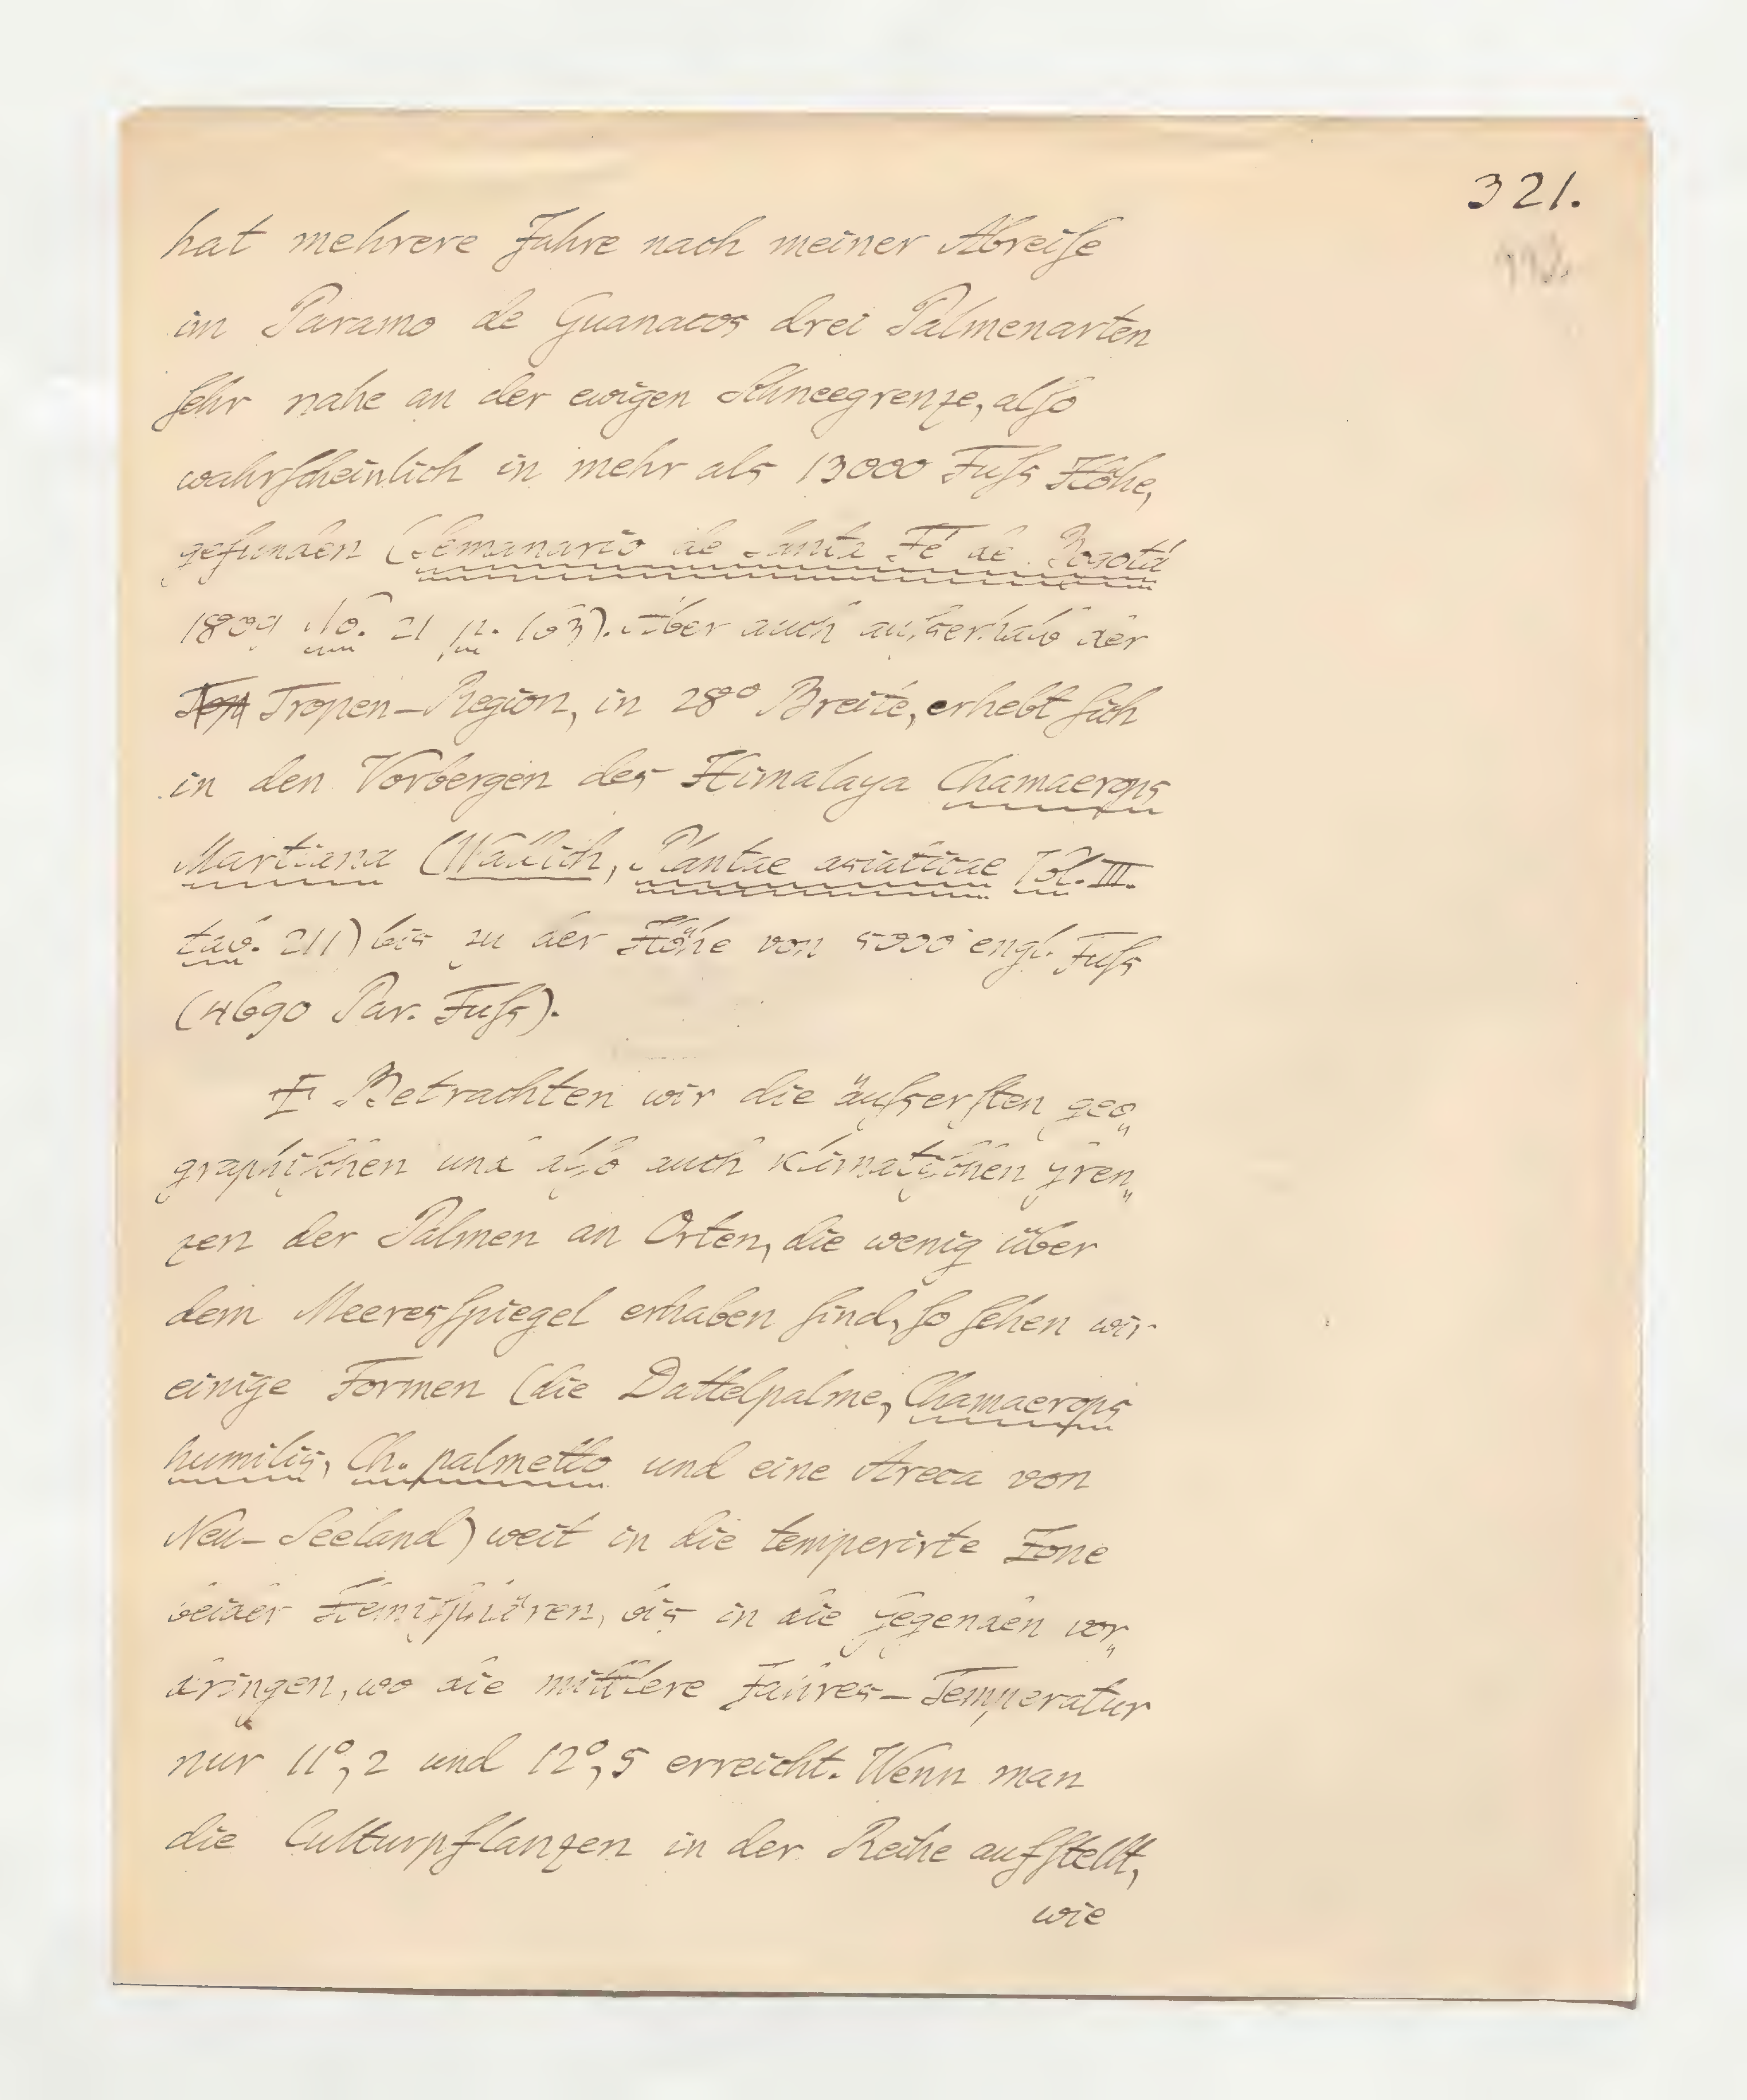 321.
hat mehrere Jahre nach meiner Abreiſe
im Paramo de Guanacos drei Palmenarten
ſehr nahe an der ewigen Schneegrenze, alſo
wahrſcheinlich in mehr als 13000 Fuſs Höhe,
gefunden (Semanario de Santa Fé de Bogotá
1809 No. 21 p. 163). Aber auch auſserhalb der
Tropen-Region, in 28° Breite, erhebt ſich
in den Vorbergen des Himalaya Chamaerops
Martiana (Wallich, Plantae asiaticae Vol. III.
tab. 211) bis zu der Höhe von 5000 engl. Fuſs
(4690 Par. Fuſs).
Betrachten wir die äuſserſten geo„
graphiſchen und alſo auch klimatiſchen Gren„
zen der Palmen an Orten, die wenig über
dem Meeresſpiegel erhaben ſind, ſo ſehen wir
einige Formen (die Dattelpalme, Chamaerops
humilis, Ch. palmetto und eine Areca von
Neu-Seeland) weit in die temperirte Zone
beider Hemiſphären, bis in die Gegenden vor„
dringen, wo die mittlere Jahres-Temperatur
nur 11°,2 und 12°,5 erreicht. Wenn man
die Culturpflanzen in der Reihe aufſtellt,
wie